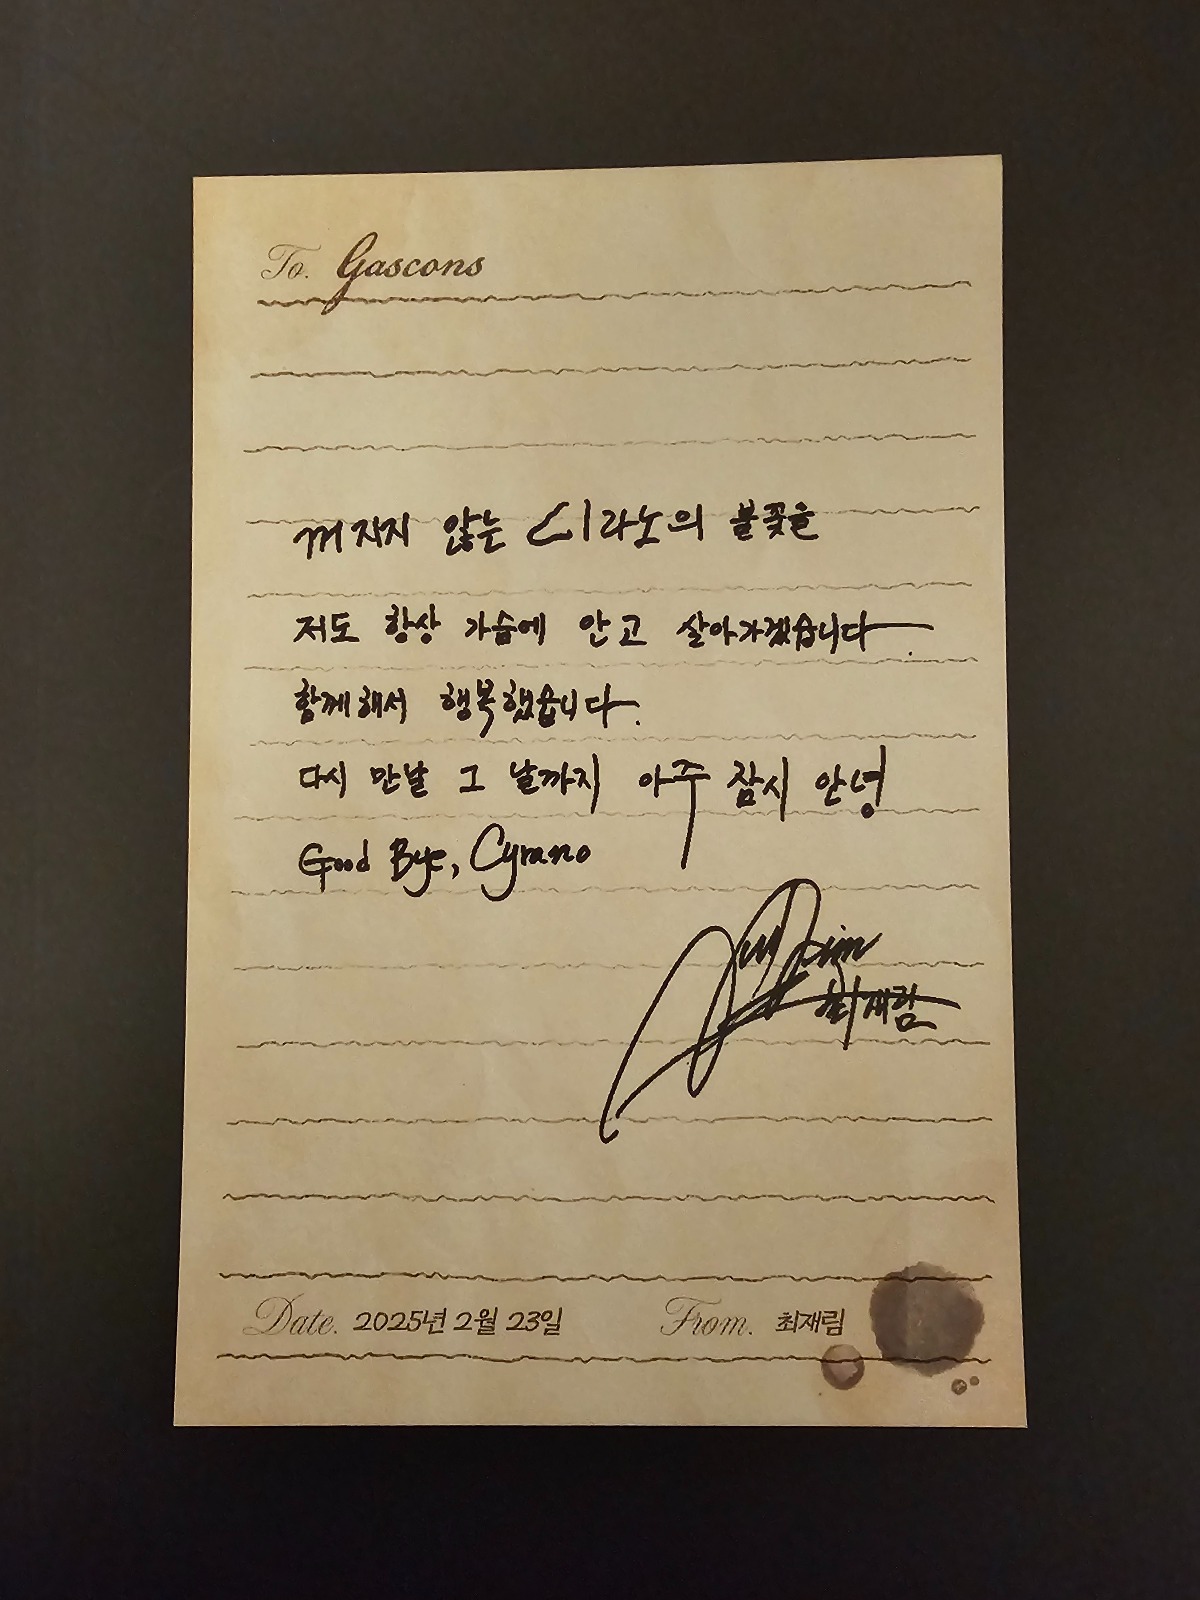 To. Gascons
꺼지지 않는 시라노의 불꽃을
저도 항상 가슴에 안고 살아가겠습니다.
함께해서 행복했습니다.
다시 만날 그 날까지 아주 잠시 안녕
Good Bye, Cyrano
최재림
Date. 2025년 2월 23일 From. 최재림